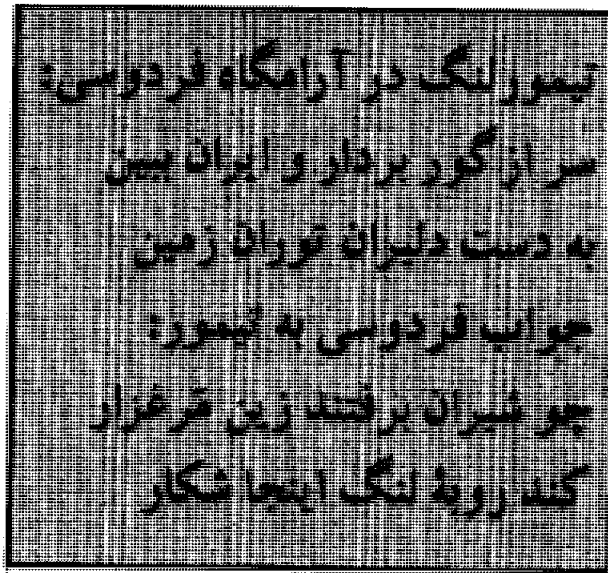 تیمور لنگ در آرامگاه فردوسی:
سر از گور بردار و ایران ببین
به دست دلیران توران زمین
جواب فردوسی به تیمور:
چو شیران برفتند زین مرغزار
کند روبهٔ لنگ اینجا شکار